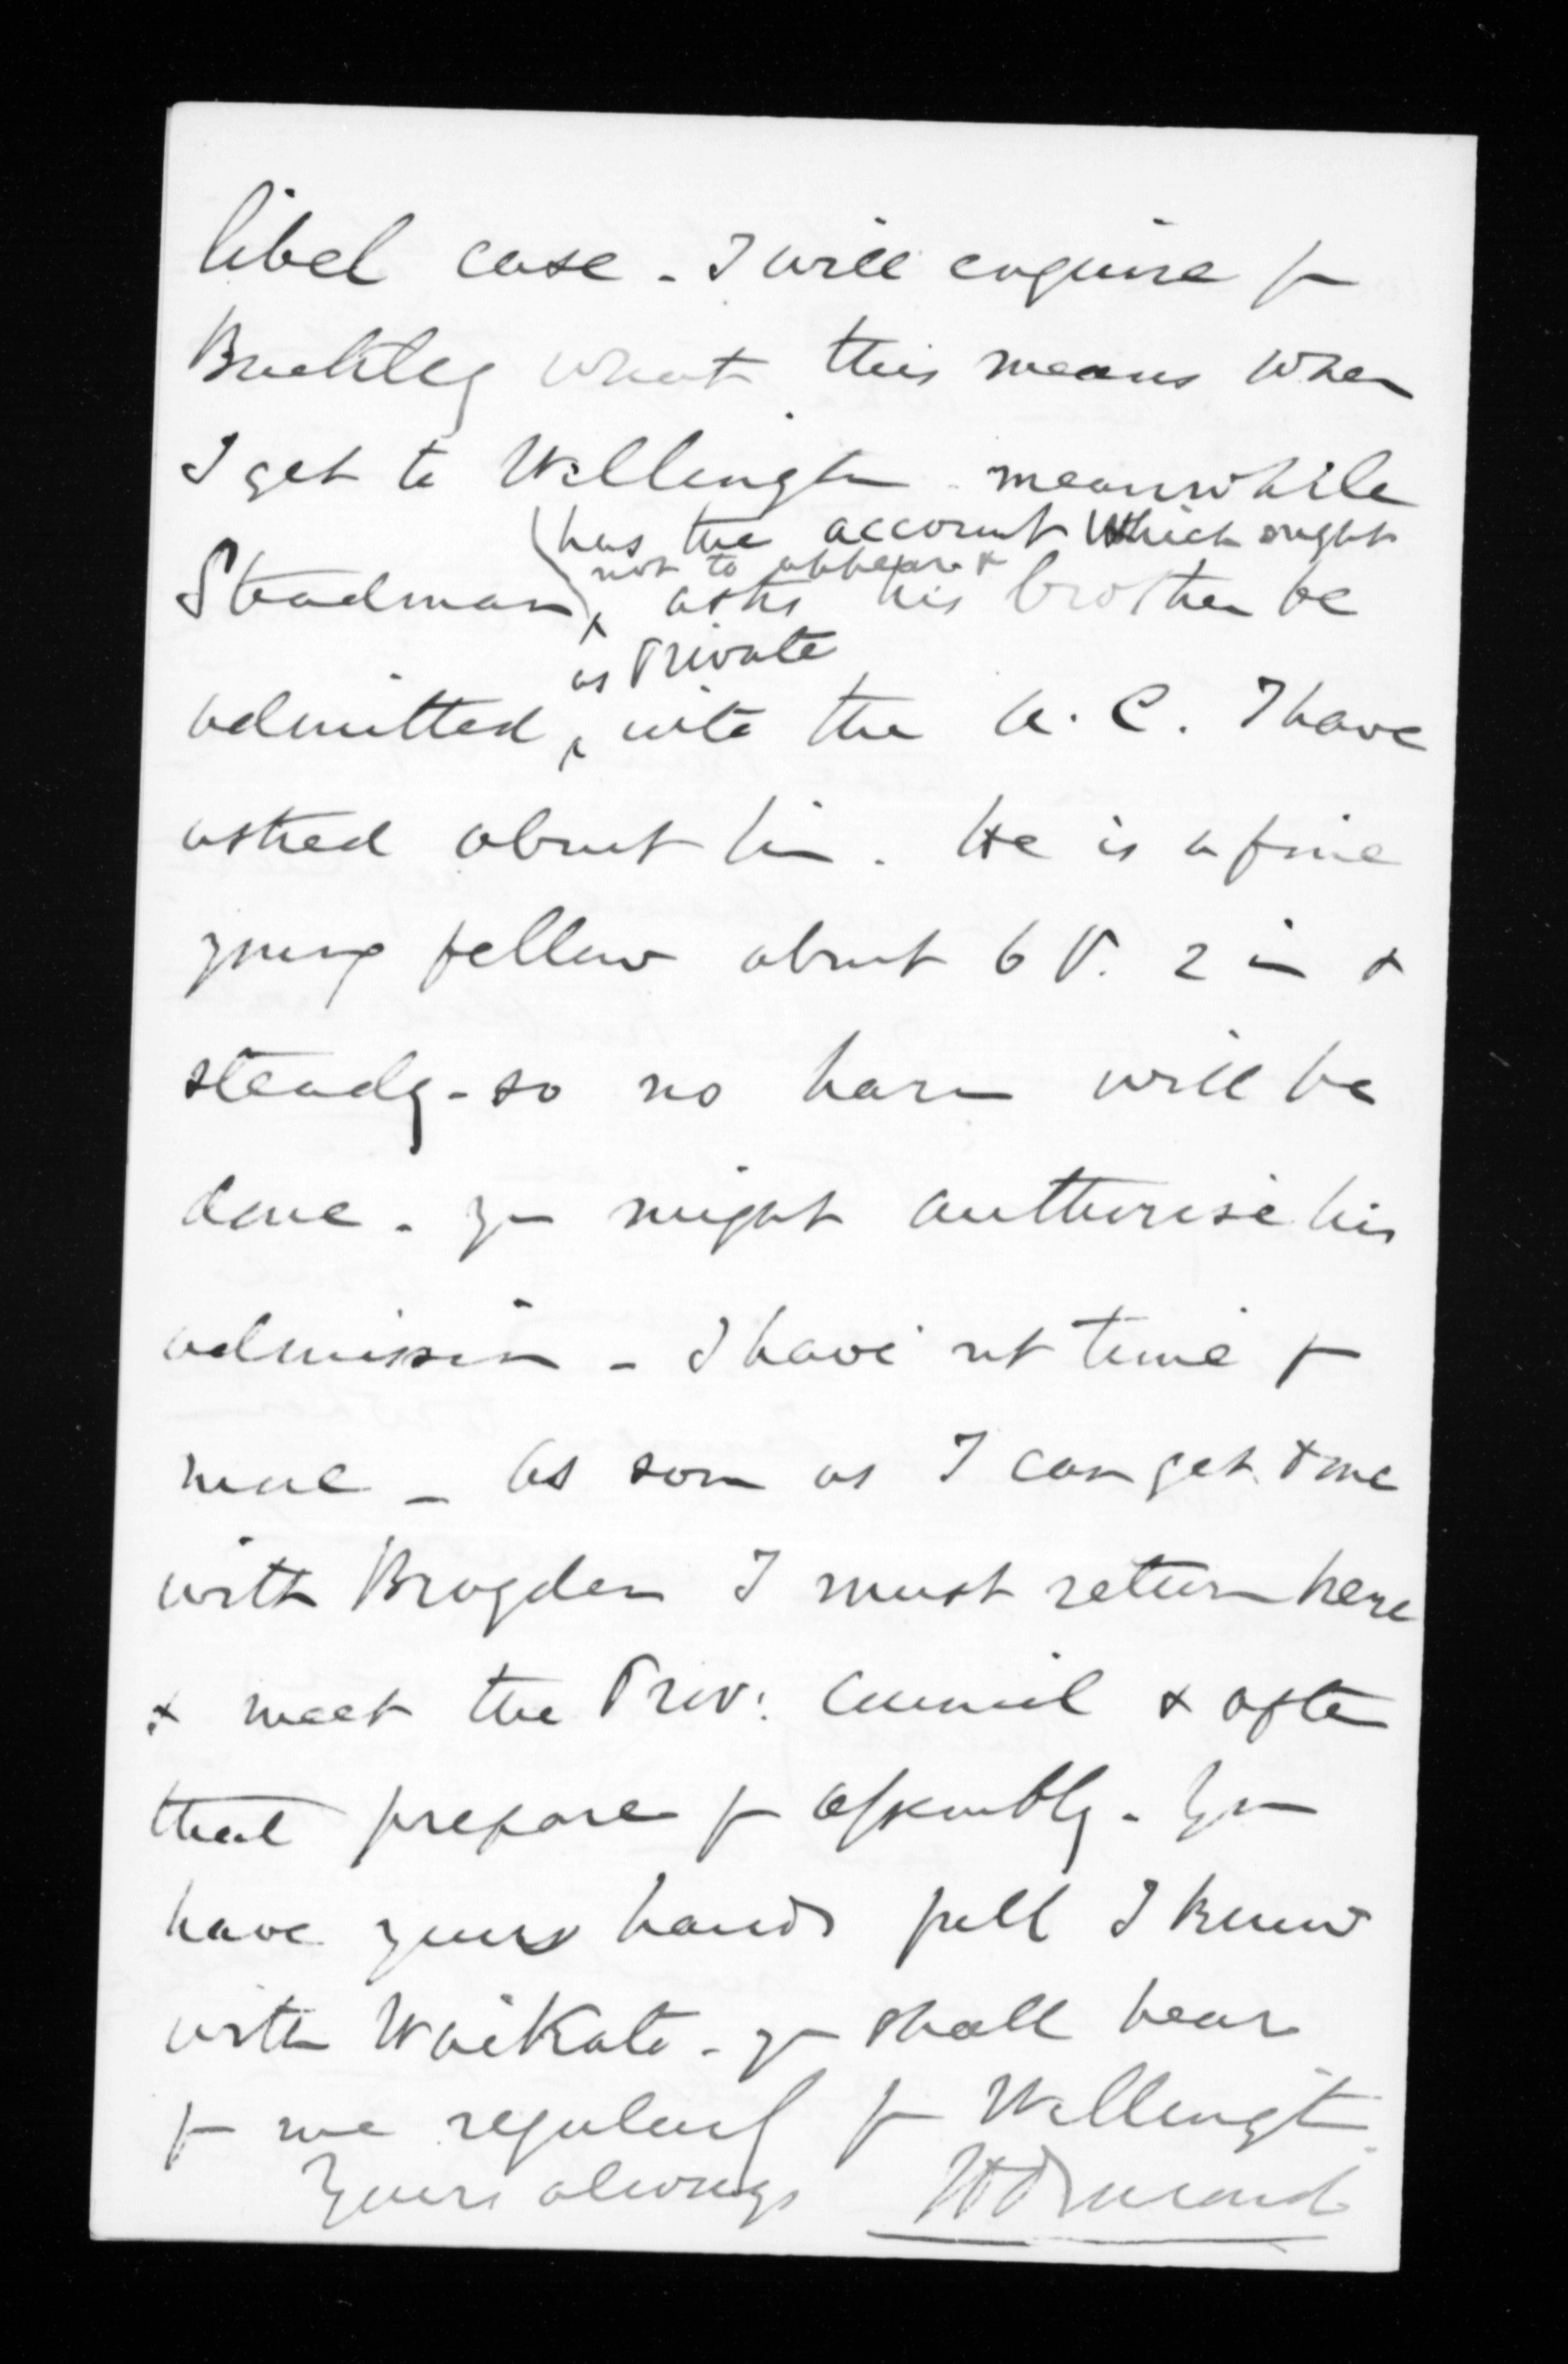 libel case - I will enquire fr
Buckley what this means when
I get to Wellington meanwhile
(has the account which ought
not to appear &
Steadman, asks his brother be
as Private
admitted, into the A.C. I have
asked about him. He is a fine
young fellow about 6 F. 2 in &
steady - so no harm will be
done - you might authorise his
admission - I have not time for
more - As soon as I can get done
with Brogden I must return here
& meet the Prov: Council & after
that prepare for assembly - You
have yours hands full I know
with Waikato - you shall hear
fr me regularly fr Wellington
Yours always JD Ormond